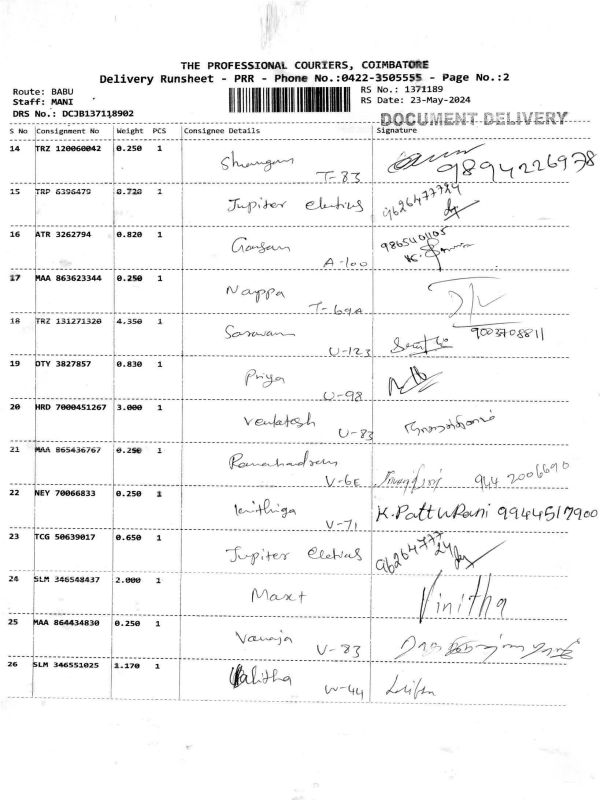 THE PROFESSIONAL COURIERS, COIMBATORE
Delivery Runsheet - PRR - Phone No.:0422-3505555 - Page No.:2
Route: BABU
RS No.: 1371189
Staff: MANI
RS Date: 23-May-2024
DRS No.: DCJB137118902
DOCUMENT DELIVERY
S No Consignment No Weight PCS Consignee Details Signature
14 TRZ 120060042 0.250 1
T-83 9894226978
15 TRP 6396479 0.720 1 Jupiter 9626477724
16 ATR 3262794 0.820 1 Ganesan 9865401105
A-100
17 MAA 863623344 0.250 1 Nappa
T-69A
18 TRZ 131271320 4.350 1 9003708811
U-123
19 OTY 3827857 0.830 1 Priya
U-98
20 HRD 7000451267 3.000 1 Venkatesh
U-83
21 MAA 865436767 0.250 1
V-6E 944 2006690
22 NEY 70066833 0.250 1
V-71 K.PattuRani 9944517900
23 TCG 50639017 0.650 1 Jupiter 96264777 24
24 SLM 346548437 2.000 1 Vinitha
25 MAA 864434830 0.250 1 Vanaja
V-83
26 SLM 346551025 1.170 1 Lalitha
W-44